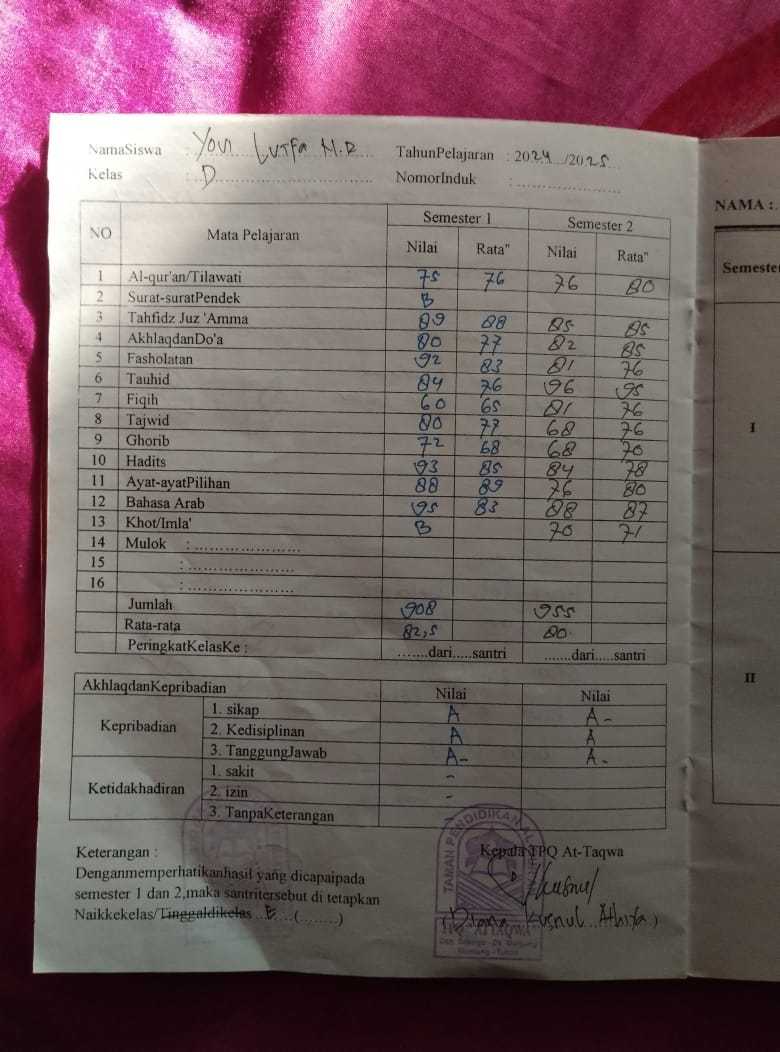 NamaSiswa : Yovi Lutfa M.R TahunPelajaran : 2024/2025
Kelas : D NomorInduk : ....................
NO Mata Pelajaran Semester 1 Semester 2
Nilai Rata" Nilai Rata"
1 Al-qur'an/Tilawati 75 76 76 80
2 Surat-suratPendek B
3 Tahfidz Juz 'Amma 89 88 85 85
4 AkhlaqdanDo'a 80 77 82 85
5 Fasholatan 92 83 81 76
6 Tauhid 84 76 96 95
7 Fiqih 60 65 81 76
8 Tajwid 80 77 68 76
9 Ghorib 72 68 68 70
10 Hadits 93 85 84 78
11 Ayat-ayatPilihan 88 89 76 80
12 Bahasa Arab 95 83 88 87
13 Khot/Imla' B 70 71
14 Mulok : .....................
15 : .....................
16 : .....................
Jumlah 908 955
Rata-rata 82,5 80.
PeringkatKelasKe : .......dari.....santri .......dari.....santri
AkhlaqdanKepribadian Nilai Nilai
Kepribadian
1. sikap A A-
2. Kedisiplinan A A
3. TanggungJawab A- A-
Ketidakhadiran
1. sakit -
2. izin -
3. TanpaKeterangan -
Keterangan :
Denganmemperhatikanhasil yang dicapaipada
semester 1 dan 2,maka santritersebut di tetapkan
Naikkekelas/Tinggaldikelas ..E....(........)
Kepala TPQ At-Taqwa
(Diana Kusnul Athifa)
TAMAN PENDIDIKAN AL
TPQ AT TAQWA
NAMA :.
Semester
I
II